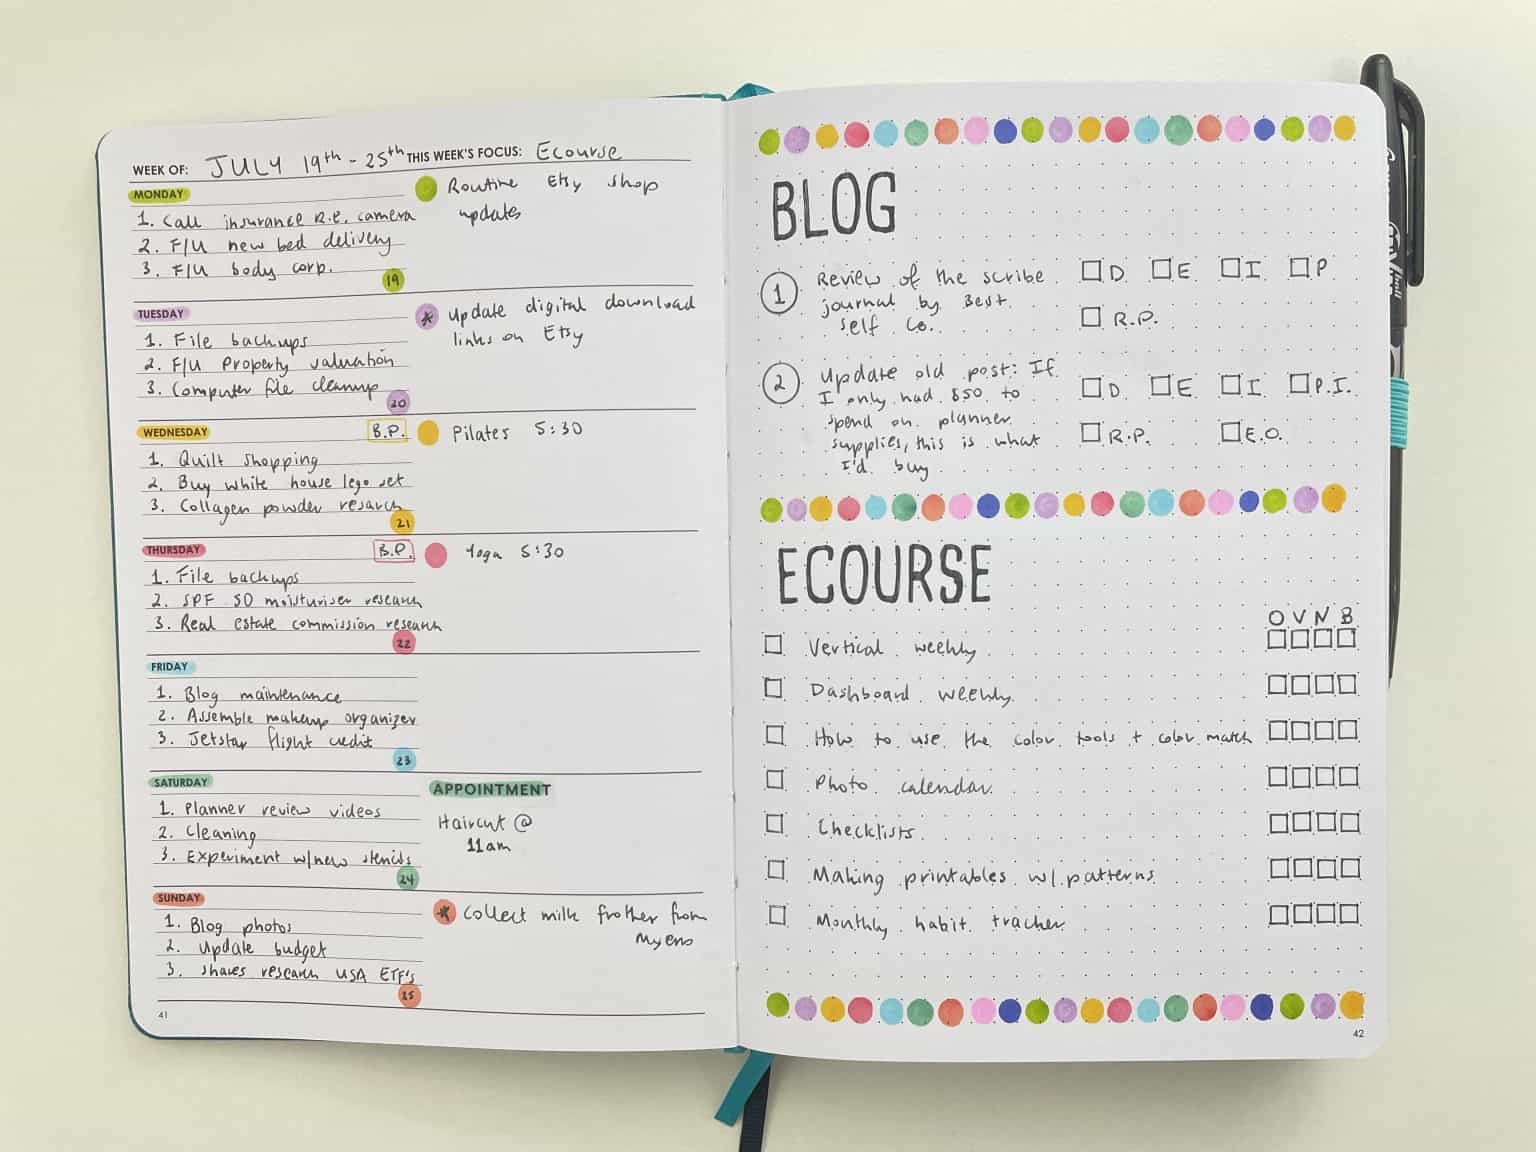 WEEK OF: JULY 19th - 25th THIS WEEK'S FOCUS: Ecourse
MONDAY
1. Call insurance R.e. camera
2. F/U new bed delivery
3. F/U body corp.
19
Routine Etsy shop
updates
TUESDAY
1. File backups
2. F/U Property valuation
3. Computer file cleanup
20
Update digital download
links on Etsy
WEDNESDAY
B.P.
1. Quilt shopping
2. Buy white house lego set
3. Collagen powder resarch
21
Pilates 5:30
THURSDAY
B.P.
1. File backups
2. SPF 50 moisturiser research
3. Real estate commission research
22
Yoga 5:30
FRIDAY
1. Blog maintenance
2. Assemble makeup organizer
3. Jetstar flight credit
23
SATURDAY
1. Planner review videos
2. Cleaning
3. Experiment w/new stencils
24
APPOINTMENT
Haircut @
11am
SUNDAY
1. Blog photos
2. Update budget
3. Shares research USA ETF's
25
Collect milk frother from
Myers
41
BLOG
1 Review of the scribe
journal by Best
Self Co.
D E I P
R.P.
2 Update old post: If
I only had $50 to
spend on planner
supplies, this is what
I'd buy
D E I P.I.
R.P. E.O.
ECOURSE
O V N B
Vertical weekly
Dashboard weekly
How to use the color tools + color match
Photo calendar
Checklists
Making printables w/ patterns
Monthly habit tracker
42